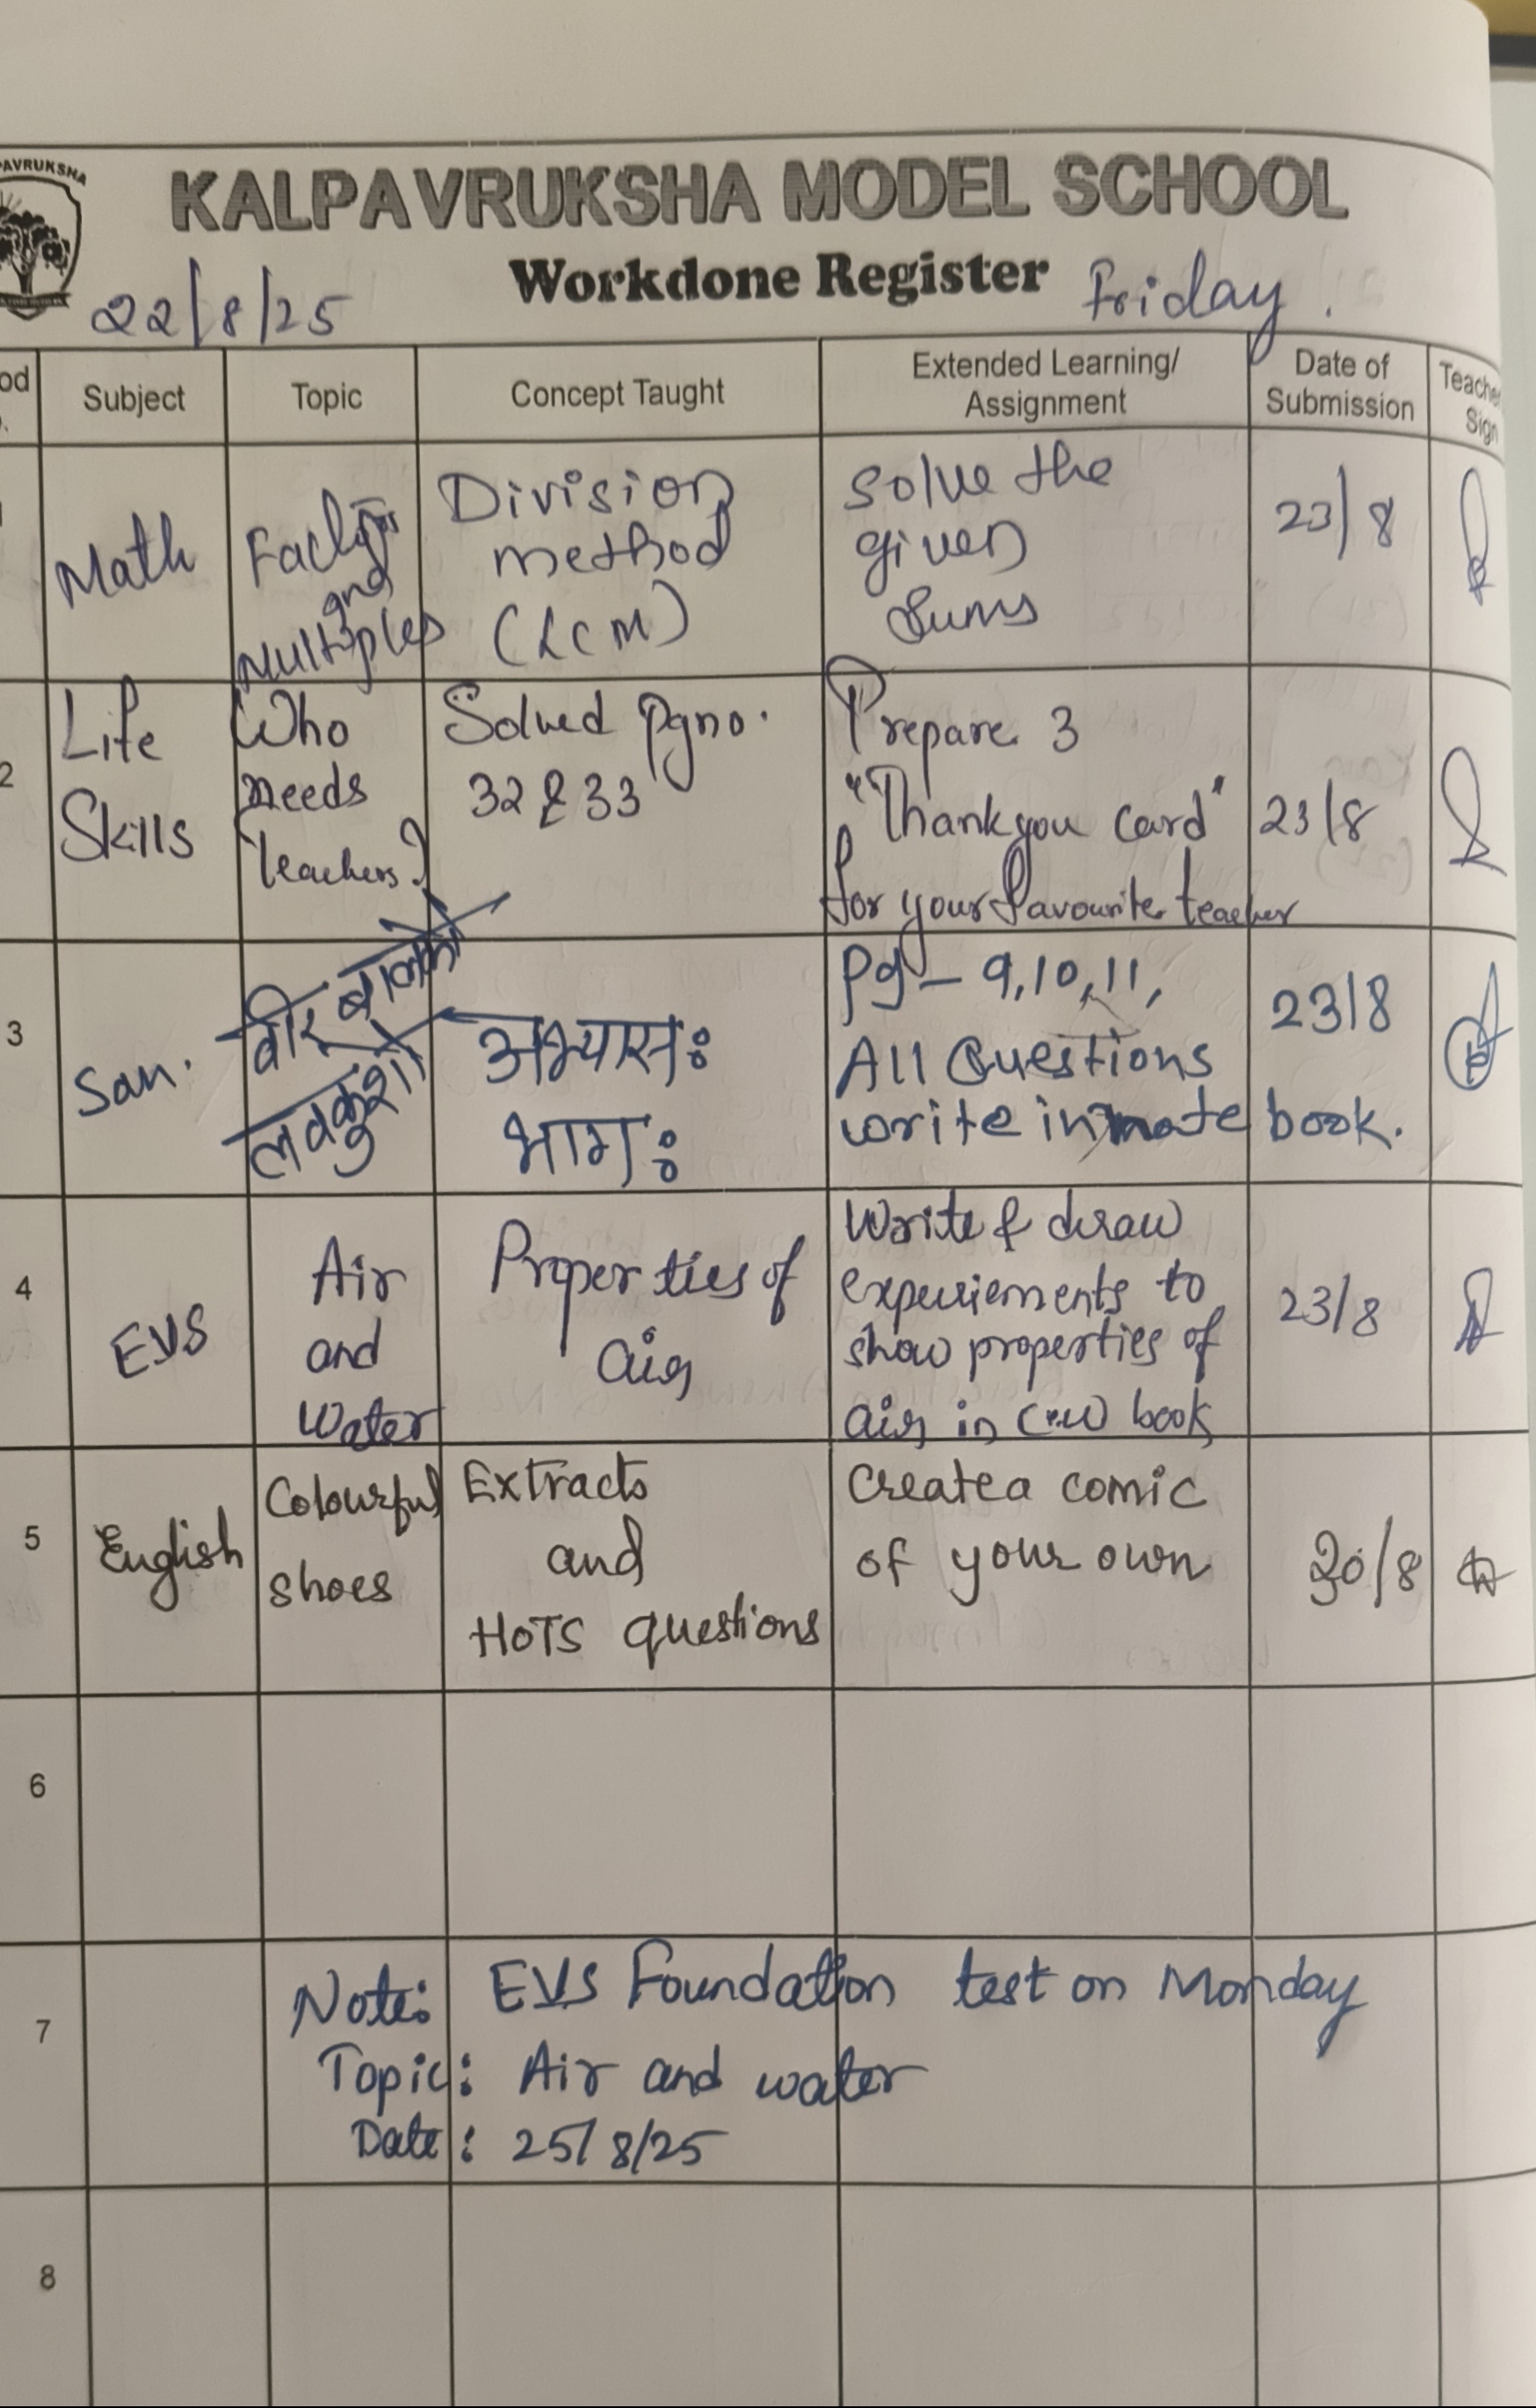 PAVRUKSHA
KALPAVRUKSHA MODEL SCHOOL
Workdone Register
22/8/25
Friday.
od
Subject
Topic
Concept Taught
Extended Learning/
Assignment
Date of
Submission
Teacher
Sign
Math
and
Multiples
Division
method
(LCM)
Solve the
given
Sums
23/8
2
Life
Skills
Who
needs
Teachers?
Solved Pgno.
32 & 33
Prepare 3
"Thankyou Card"
for your favourite teacher
23/8
3
San.
वीर बालको
लवकुशो
अभ्यासः
भागः
Pg - 9,10,11,
All Questions
write in note book.
23/8
4
EVS
Air
and
Water
Properties of
air
Write & draw
experiements to
show properties of
air in C.W book
23/8
5
English
Colourful
shoes
Extracts
and
HOTS questions
Create a comic
of your own
30/8
6
7
Note: EVS Foundation test on Monday
Topic: Air and water
Date: 25/8/25
8